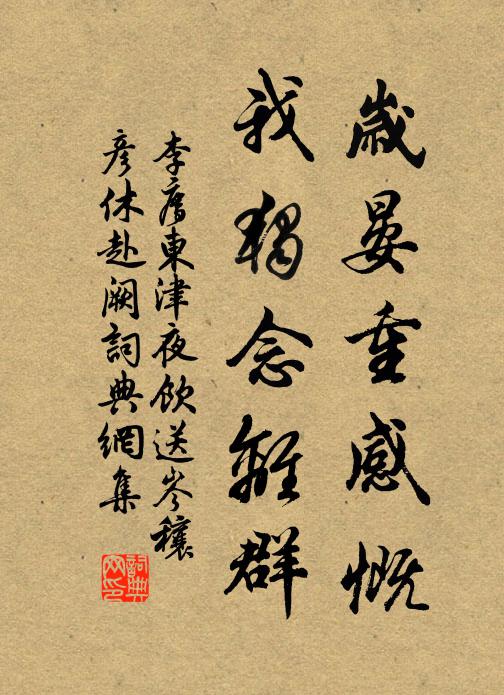 歲晏重感慨
我獨念離群
李廌東津夜飲送岑穰
彥休赴闕詞典網集
詞典網印